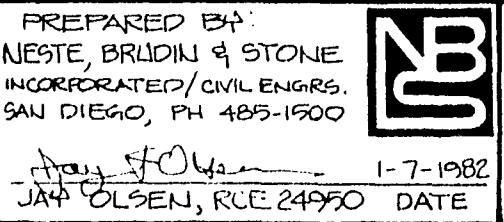 PREPARED BY:
NESTE, BRUDIN & STONE
INCORPORATED/CIVIL ENGRS.
SAN DIEGO, PH 485-1500
NBS
Jay F Olsen 1-7-1982
JAY OLSEN, RCE 24950 DATE